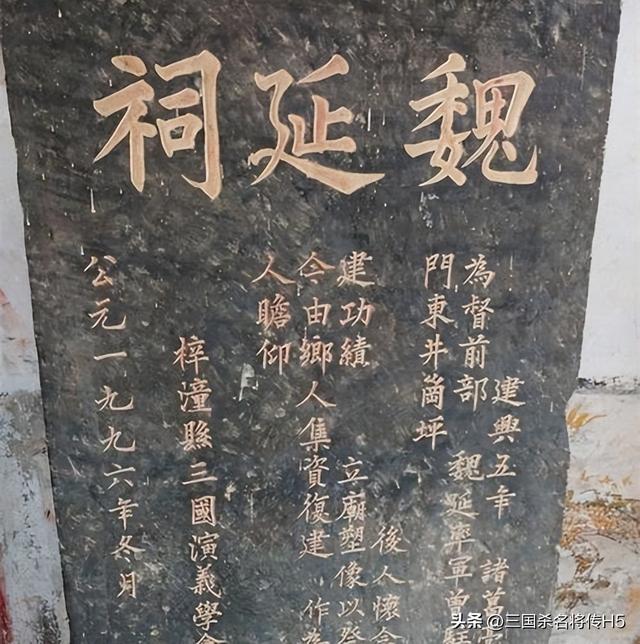 魏延祠
建興五年 諸葛
為督前部 魏延率軍曾
門東井崗坪
後人懷
建功績 立廟塑像以
今由鄉人集資復建 作為
人瞻仰
梓潼縣三國演義學會
公元一九九六年冬月
头条 @三国杀名将传H5